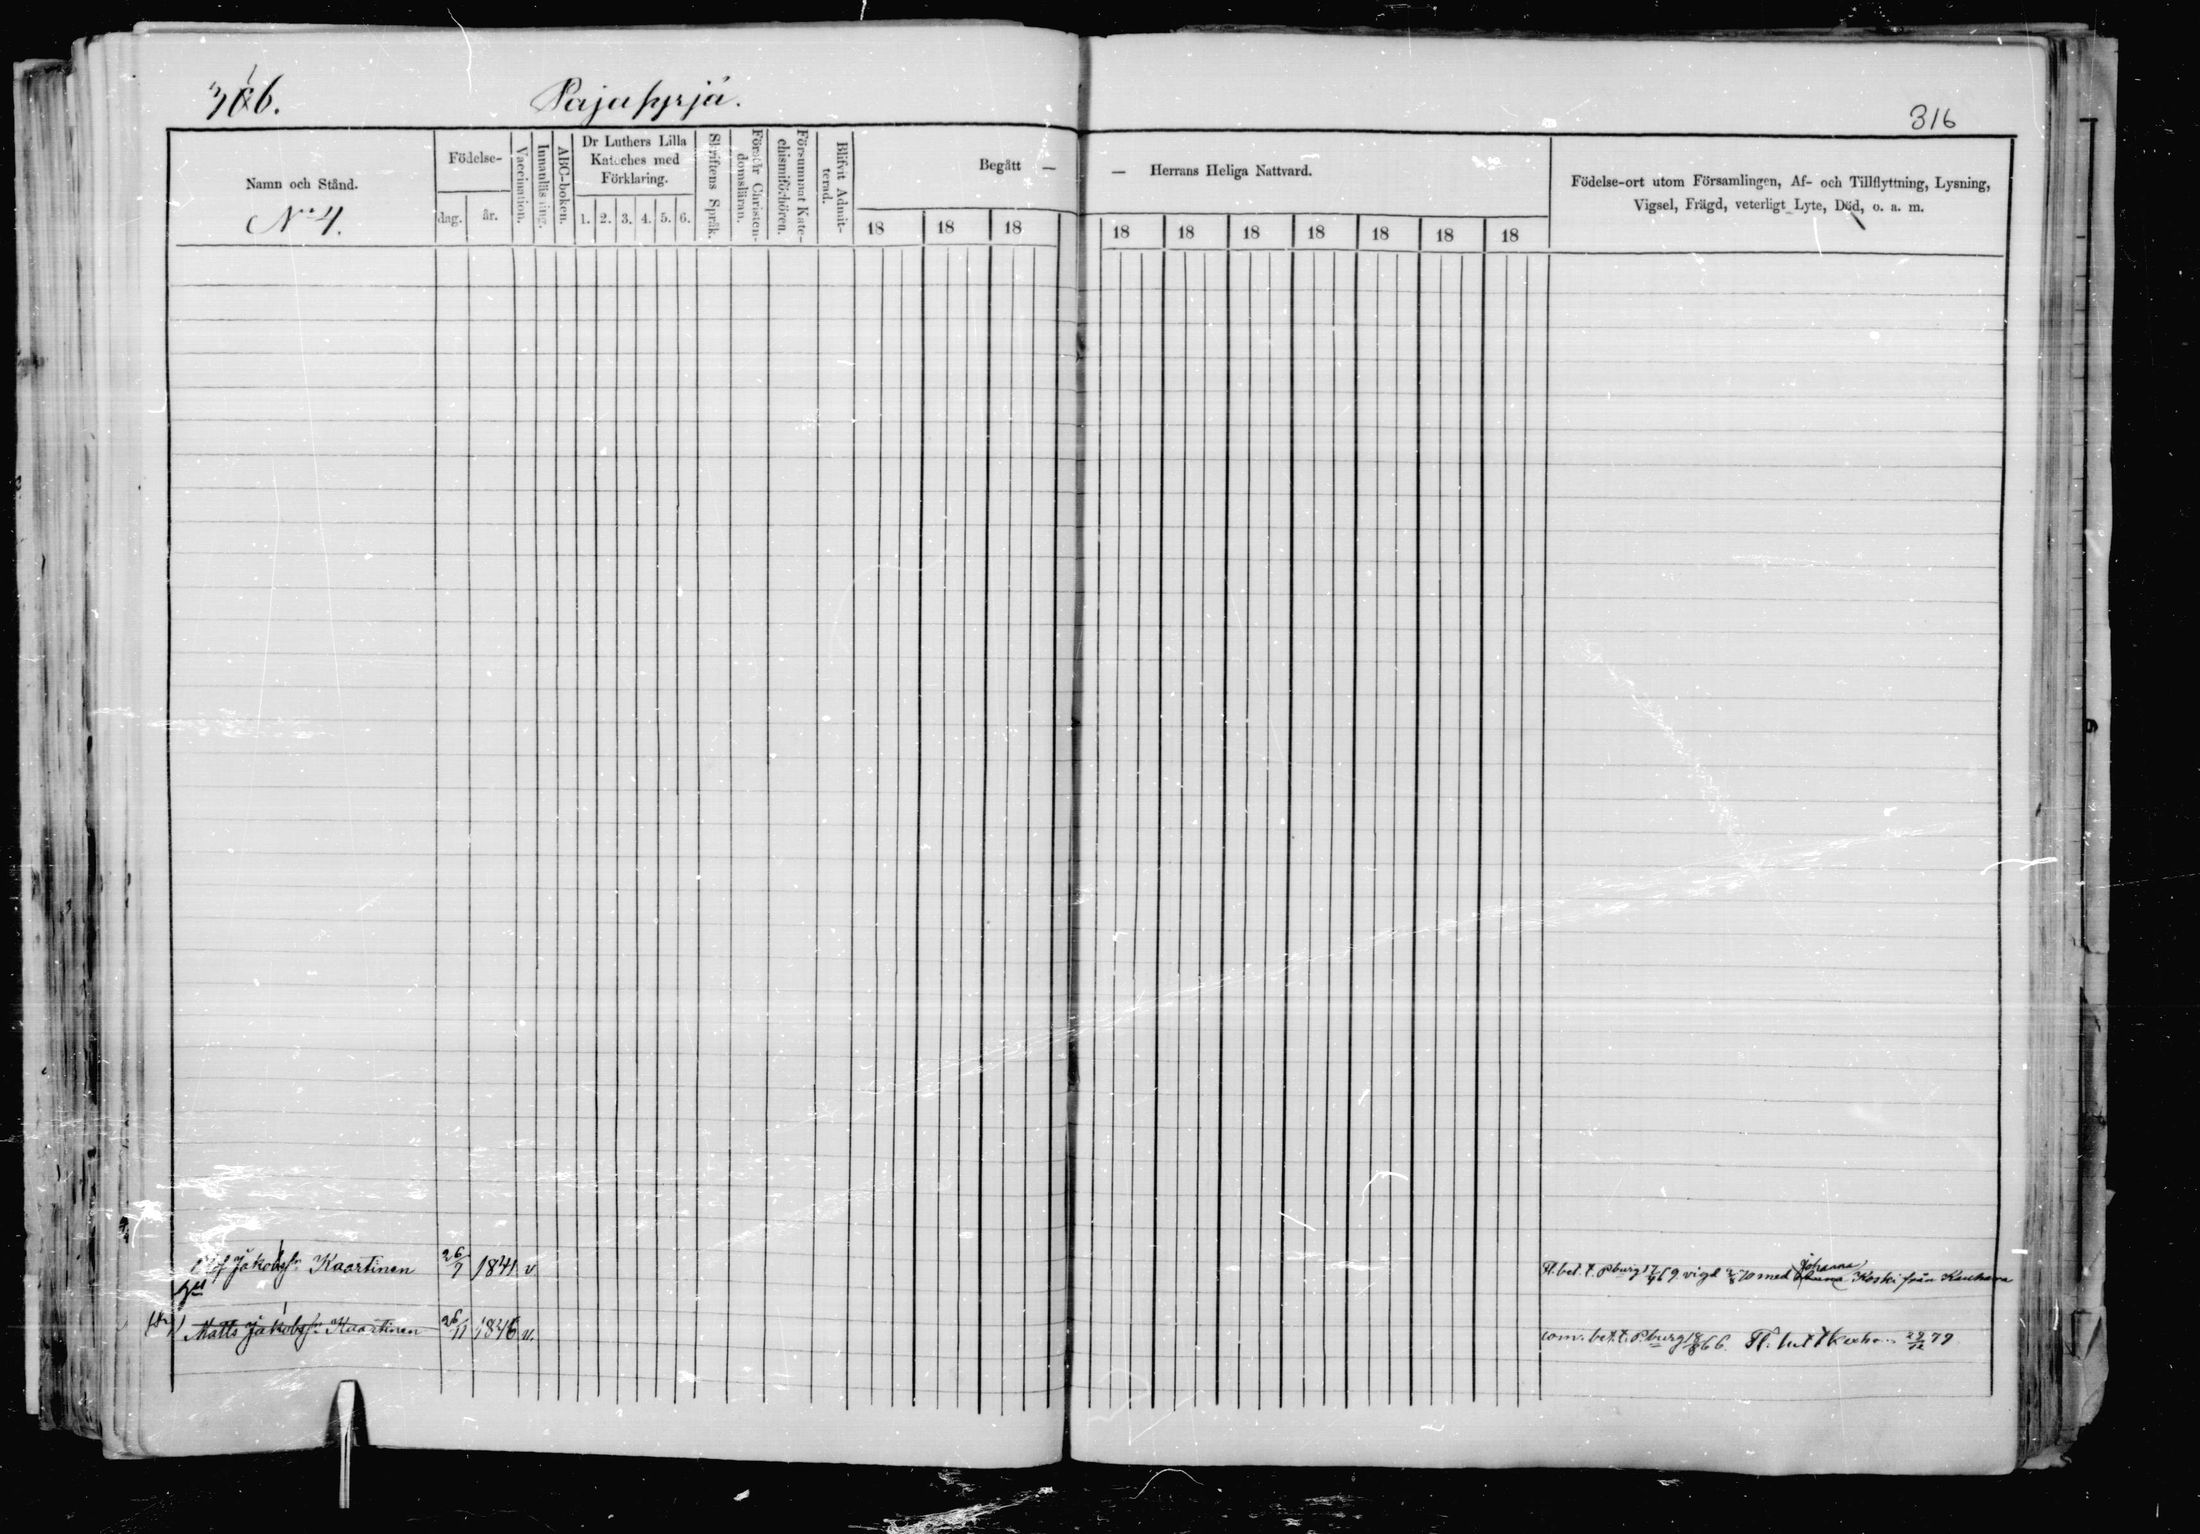 316.
Pajapyrjä.
316
Namn och Stånd.
No 4.
Födelse-
dag.
år.
Vaccination.
Innanläsning.
ABC-boken.
Dr Luthers Lilla
Kateches med
Förklaring.
1. 2. 3. 4. 5. 6.
Skriftens Språk.
Förstår Christen-
domsläran.
Försummat Kate-
chismiförhören.
Blifvit Admit-
terad.
Begått —
— Herrans Heliga Nattvard.
18 18 18 18 18 18 18 18 18 18
Födelse-ort utom Församlingen, Af- och Tillflyttning, Lysning,
Vigsel, Frägd, veterligt Lyte, Död, o. a. m.
Olof Jakobsn. Kaartinen 26/7 1841 v. bet. t. Pburg vigd med Johanna Koski från Kauhava
Matts Jakobsn. Kaartinen 26/11 1846 v. bet. t. Pburg 66. 29/12 79